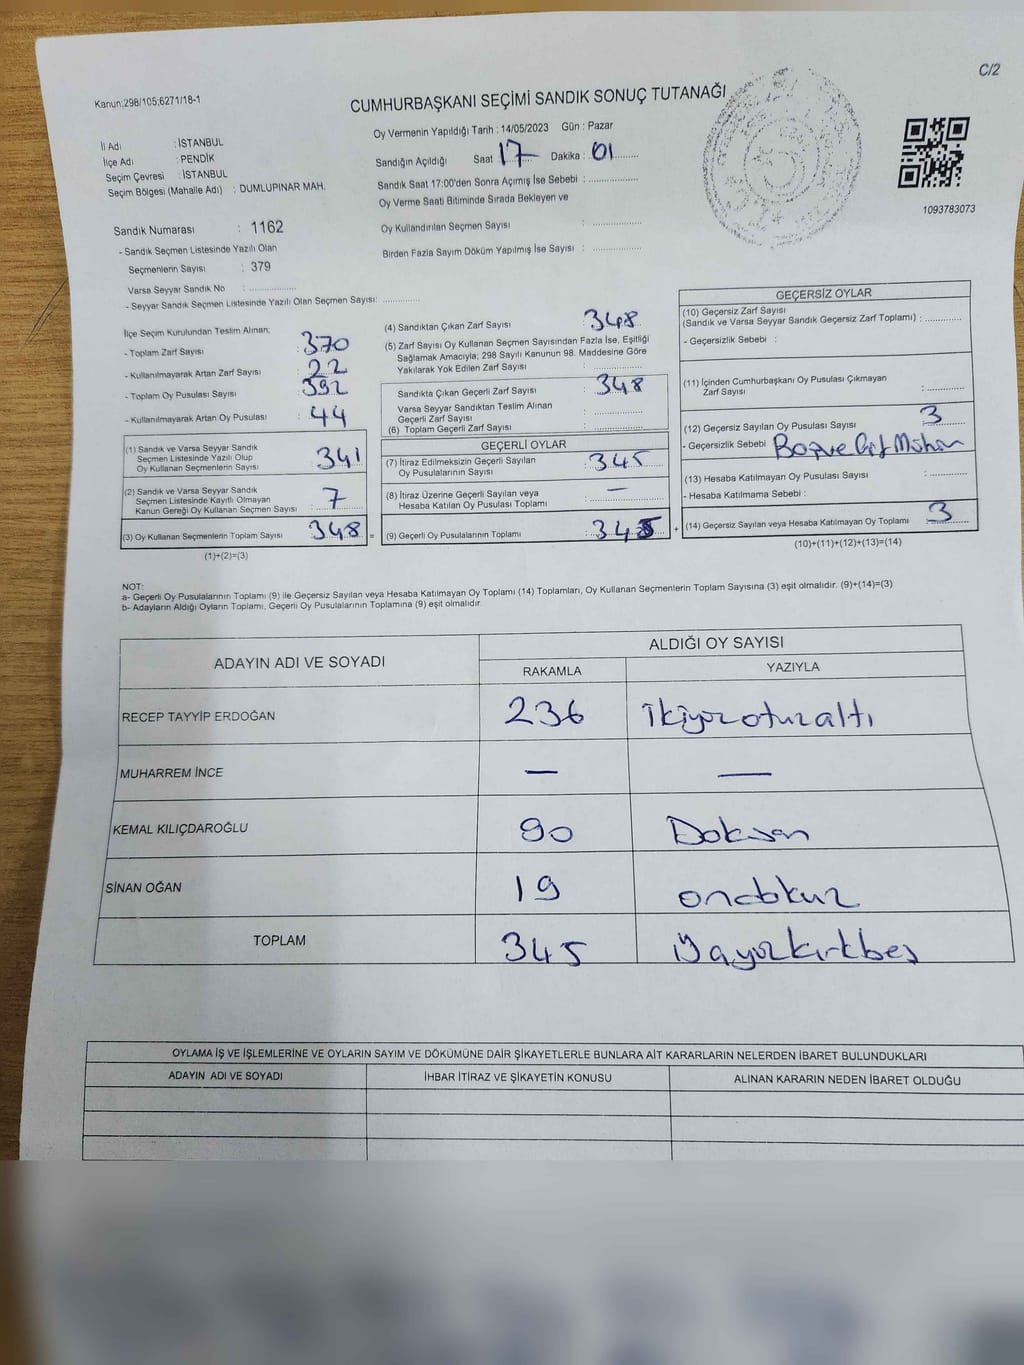 C/2
Kanun;298/105;6271/18-1
CUMHURBAŞKANI SEÇİMİ SANDIK SONUÇ TUTANAĞI
İl Adı : İSTANBUL
İlçe Adı : PENDİK
Seçim Çevresi : İSTANBUL
Seçim Bölgesi (Mahalle Adı) : DUMLUPINAR MAH.
Oy Vermenin Yapıldığı Tarih : 14/05/2023 Gün : Pazar
Sandığın Açıldığı Saat 17 Dakika : 01
Sandık Saat 17:00'den Sonra Açımış İse Sebebi :
Oy Verme Saati Bitiminde Sırada Bekleyen ve
Oy Kullandırılan Seçmen Sayısı :
Birden Fazla Sayım Döküm Yapılmış İse Sayısı :
1093783073
Sandık Numarası : 1162
- Sandık Seçmen Listesinde Yazılı Olan
Seçmenlerin Sayısı : 379
Varsa Seyyar Sandık No :
- Seyyar Sandık Seçmen Listesinde Yazılı Olan Seçmen Sayısı:
İlçe Seçim Kurulundan Teslim Alınan;
- Toplam Zarf Sayısı : 370
- Kullanılmayarak Artan Zarf Sayısı : 22
- Toplam Oy Pusulası Sayısı : 392
- Kullanılmayarak Artan Oy Pusulası : 44
(1) Sandık ve Varsa Seyyar Sandık
Seçmen Listesinde Yazılı Olup
Oy Kullanan Seçmenlerin Sayısı : 341
(2) Sandık ve Varsa Seyyar Sandık
Seçmen Listesinde Kayıtlı Olmayan
Kanun Gereği Oy Kullanan Seçmen Sayısı : 7
(3) Oy Kullanan Seçmenlerin Toplam Sayısı : 348 =
(1)+(2)=(3)
(4) Sandıktan Çıkan Zarf Sayısı : 348
(5) Zarf Sayısı Oy Kullanan Seçmen Sayısından Fazla İse, Eşitliği
Sağlamak Amacıyla, 298 Sayılı Kanunun 98. Maddesine Göre
Yakılarak Yok Edilen Zarf Sayısı :
Sandıkta Çıkan Geçerli Zarf Sayısı : 348
Varsa Seyyar Sandıktan Teslim Alınan
Geçerli Zarf Sayısı :
(6) Toplam Geçerli Zarf Sayısı :
GEÇERLİ OYLAR
(7) İtiraz Edilmeksizin Geçerli Sayılan
Oy Pusulalarının Sayısı : 345
(8) İtiraz Üzerine Geçerli Sayılan veya
Hesaba Katılan Oy Pusulası Toplamı : —
(9) Geçerli Oy Pusulalarının Toplamı : 345 +
GEÇERSİZ OYLAR
(10) Geçersiz Zarf Sayısı
(Sandık ve Varsa Seyyar Sandık Geçersiz Zarf Toplamı) :
- Geçersizlik Sebebi :
(11) İçinden Cumhurbaşkanı Oy Pusulası Çıkmayan
Zarf Sayısı :
(12) Geçersiz Sayılan Oy Pusulası Sayısı : 3
- Geçersizlik Sebebi
(13) Hesaba Katılmayan Oy Pusulası Sayısı :
- Hesaba Katılmama Sebebi :
(14) Geçersiz Sayılan veya Hesaba Katılmayan Oy Toplamı : 3
(10)+(11)+(12)+(13)=(14)
NOT:
a- Geçerli Oy Pusulalarının Toplamı (9) ile Geçersiz Sayılan veya Hesaba Katılmayan Oy Toplamı (14) Toplamları, Oy Kullanan Seçmenlerin Toplam Sayısına (3) eşit olmalıdır. (9)+(14)=(3)
b- Adayların Aldığı Oyların Toplamı, Geçerli Oy Pusulalarının Toplamına (9) eşit olmalıdır.
ADAYIN ADI VE SOYADI
ALDIĞI OY SAYISI
RAKAMLA YAZIYLA
RECEP TAYYİP ERDOĞAN 236 ikiyüzotuzaltı
MUHARREM İNCE — —
KEMAL KILIÇDAROĞLU 90 Doksan
SİNAN OĞAN 19 ondokuz
TOPLAM 345 üçyüzkırkbeş
OYLAMA İŞ VE İŞLEMLERİNE VE OYLARIN SAYIM VE DÖKÜMÜNE DAİR ŞİKAYETLERLE BUNLARA AİT KARARLARIN NELERDEN İBARET BULUNDUKLARI
ADAYIN ADI VE SOYADI İHBAR İTİRAZ VE ŞİKAYETİN KONUSU ALINAN KARARIN NEDEN İBARET OLDUĞU